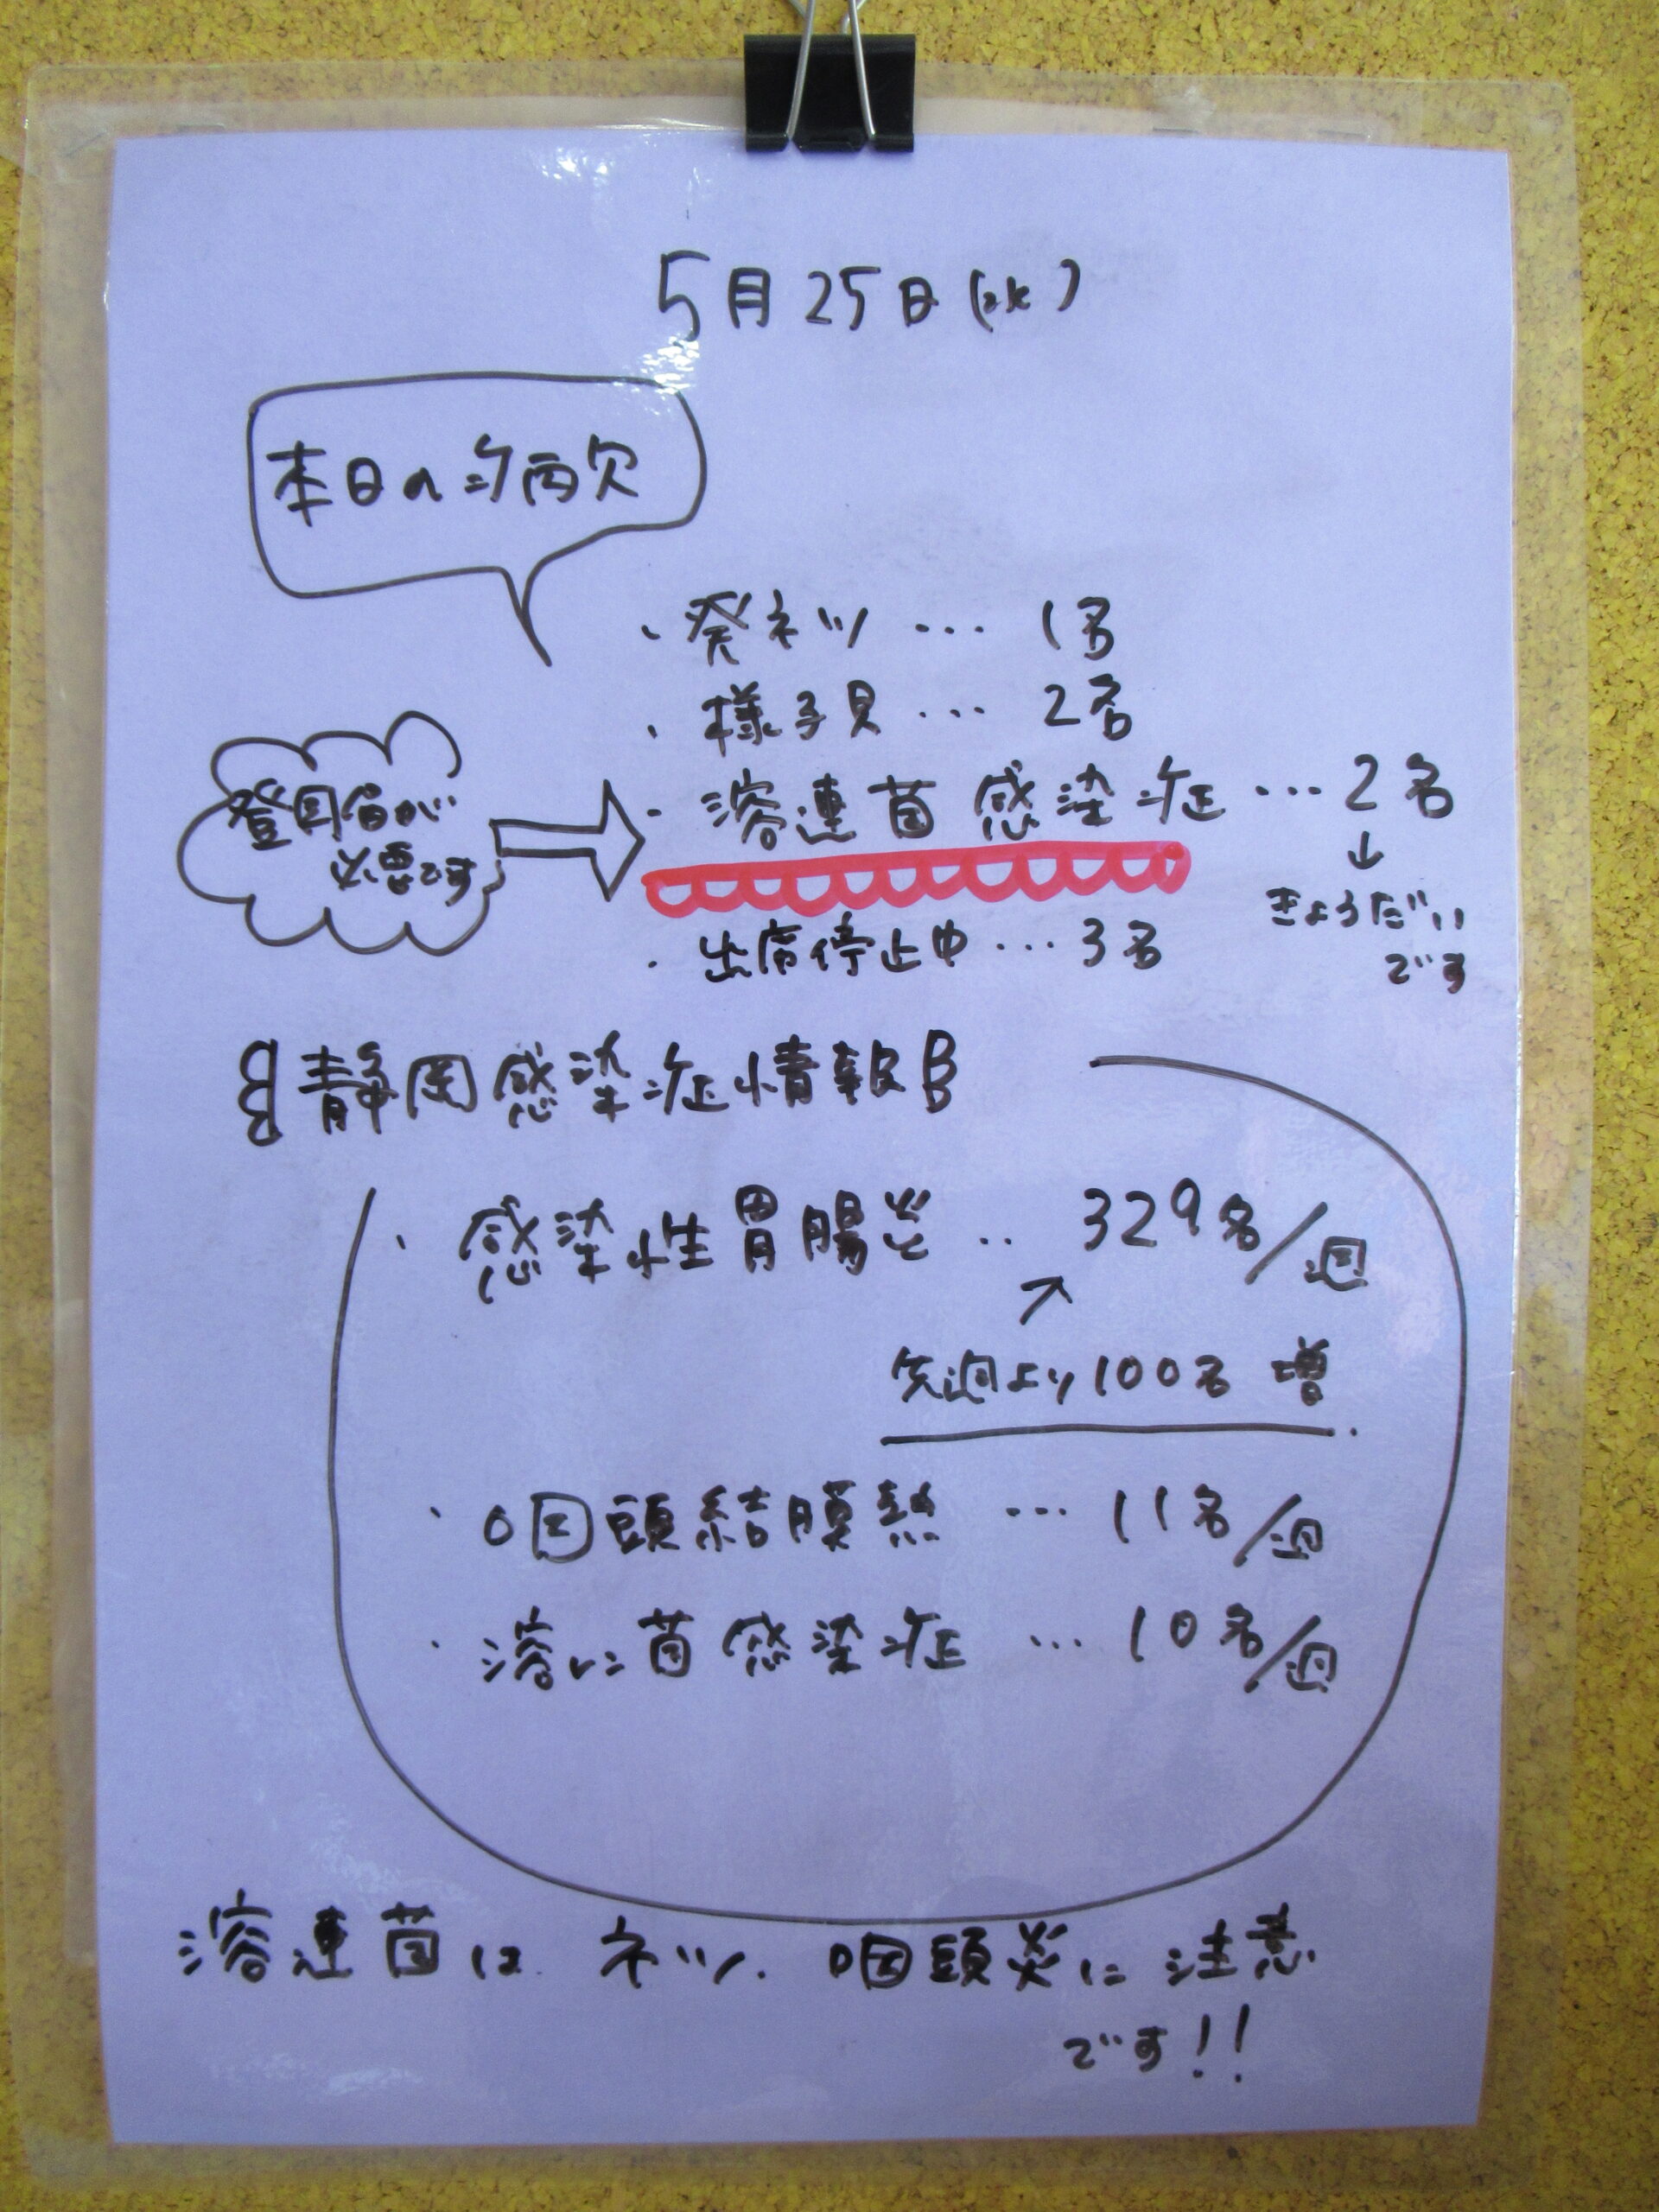 5月25日(水)
本日の病欠
・発ネツ … 1名
・様子見 … 2名
登園届が
必要です
・溶連菌感染症 … 2名
↓
きょうだい
です
・出席停止中 … 3名
静岡感染症情報
・感染性胃腸炎 ‥ 329名/週
先週より100名 増
・咽頭結膜熱 … 11名/週
・溶レン菌感染症 … 10名/週
溶連菌は ネツ、咽頭炎に注意
です!!